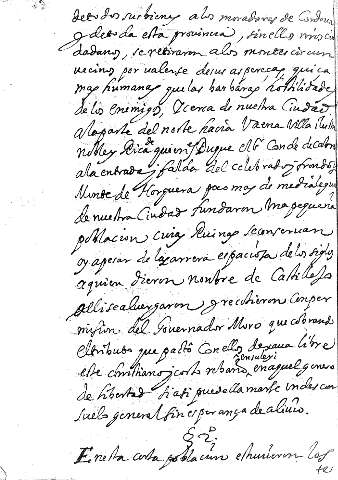 de todos sus bienes a los moradores de Cordova
y de toda esta provincia, sin ellos mis ciu
dadanos, se retiraron a los montes circun
vecinos, por valerse de sus asperezas, quiça
mas humanas que las barbaras hostilidades
de los enemigos, Y cerca de nuestra Ciudad
a la parte del norte hacia Vaena Villa ilustre
noble y Rica de quien es Duque el Conde de Cabra
a la entrada y falda del celebrado y frondoso
Monte de Horquera poco mas de media legua
de nuestra Ciudad fundaron una pequeña
poblacion cuias Ruinas se conservan
oy a pesar de la carrera espaciosa de los siglos
a quien dieron nombre de Castillejo
alli se alvergaron y recibieron con per
mision del Governador Moro que cobrando
el tributo que pactó con ellos dexava libre
este christiano y corto rebaño en aquel genero
de libertad si asi puede llamarse un descon
suelo general sin esperança de alivio.
§ 2º.
En esta corta poblacion estuvieron los